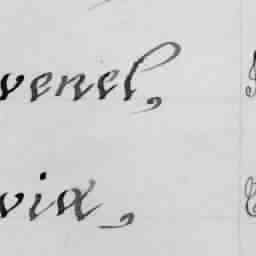 venel,
via,